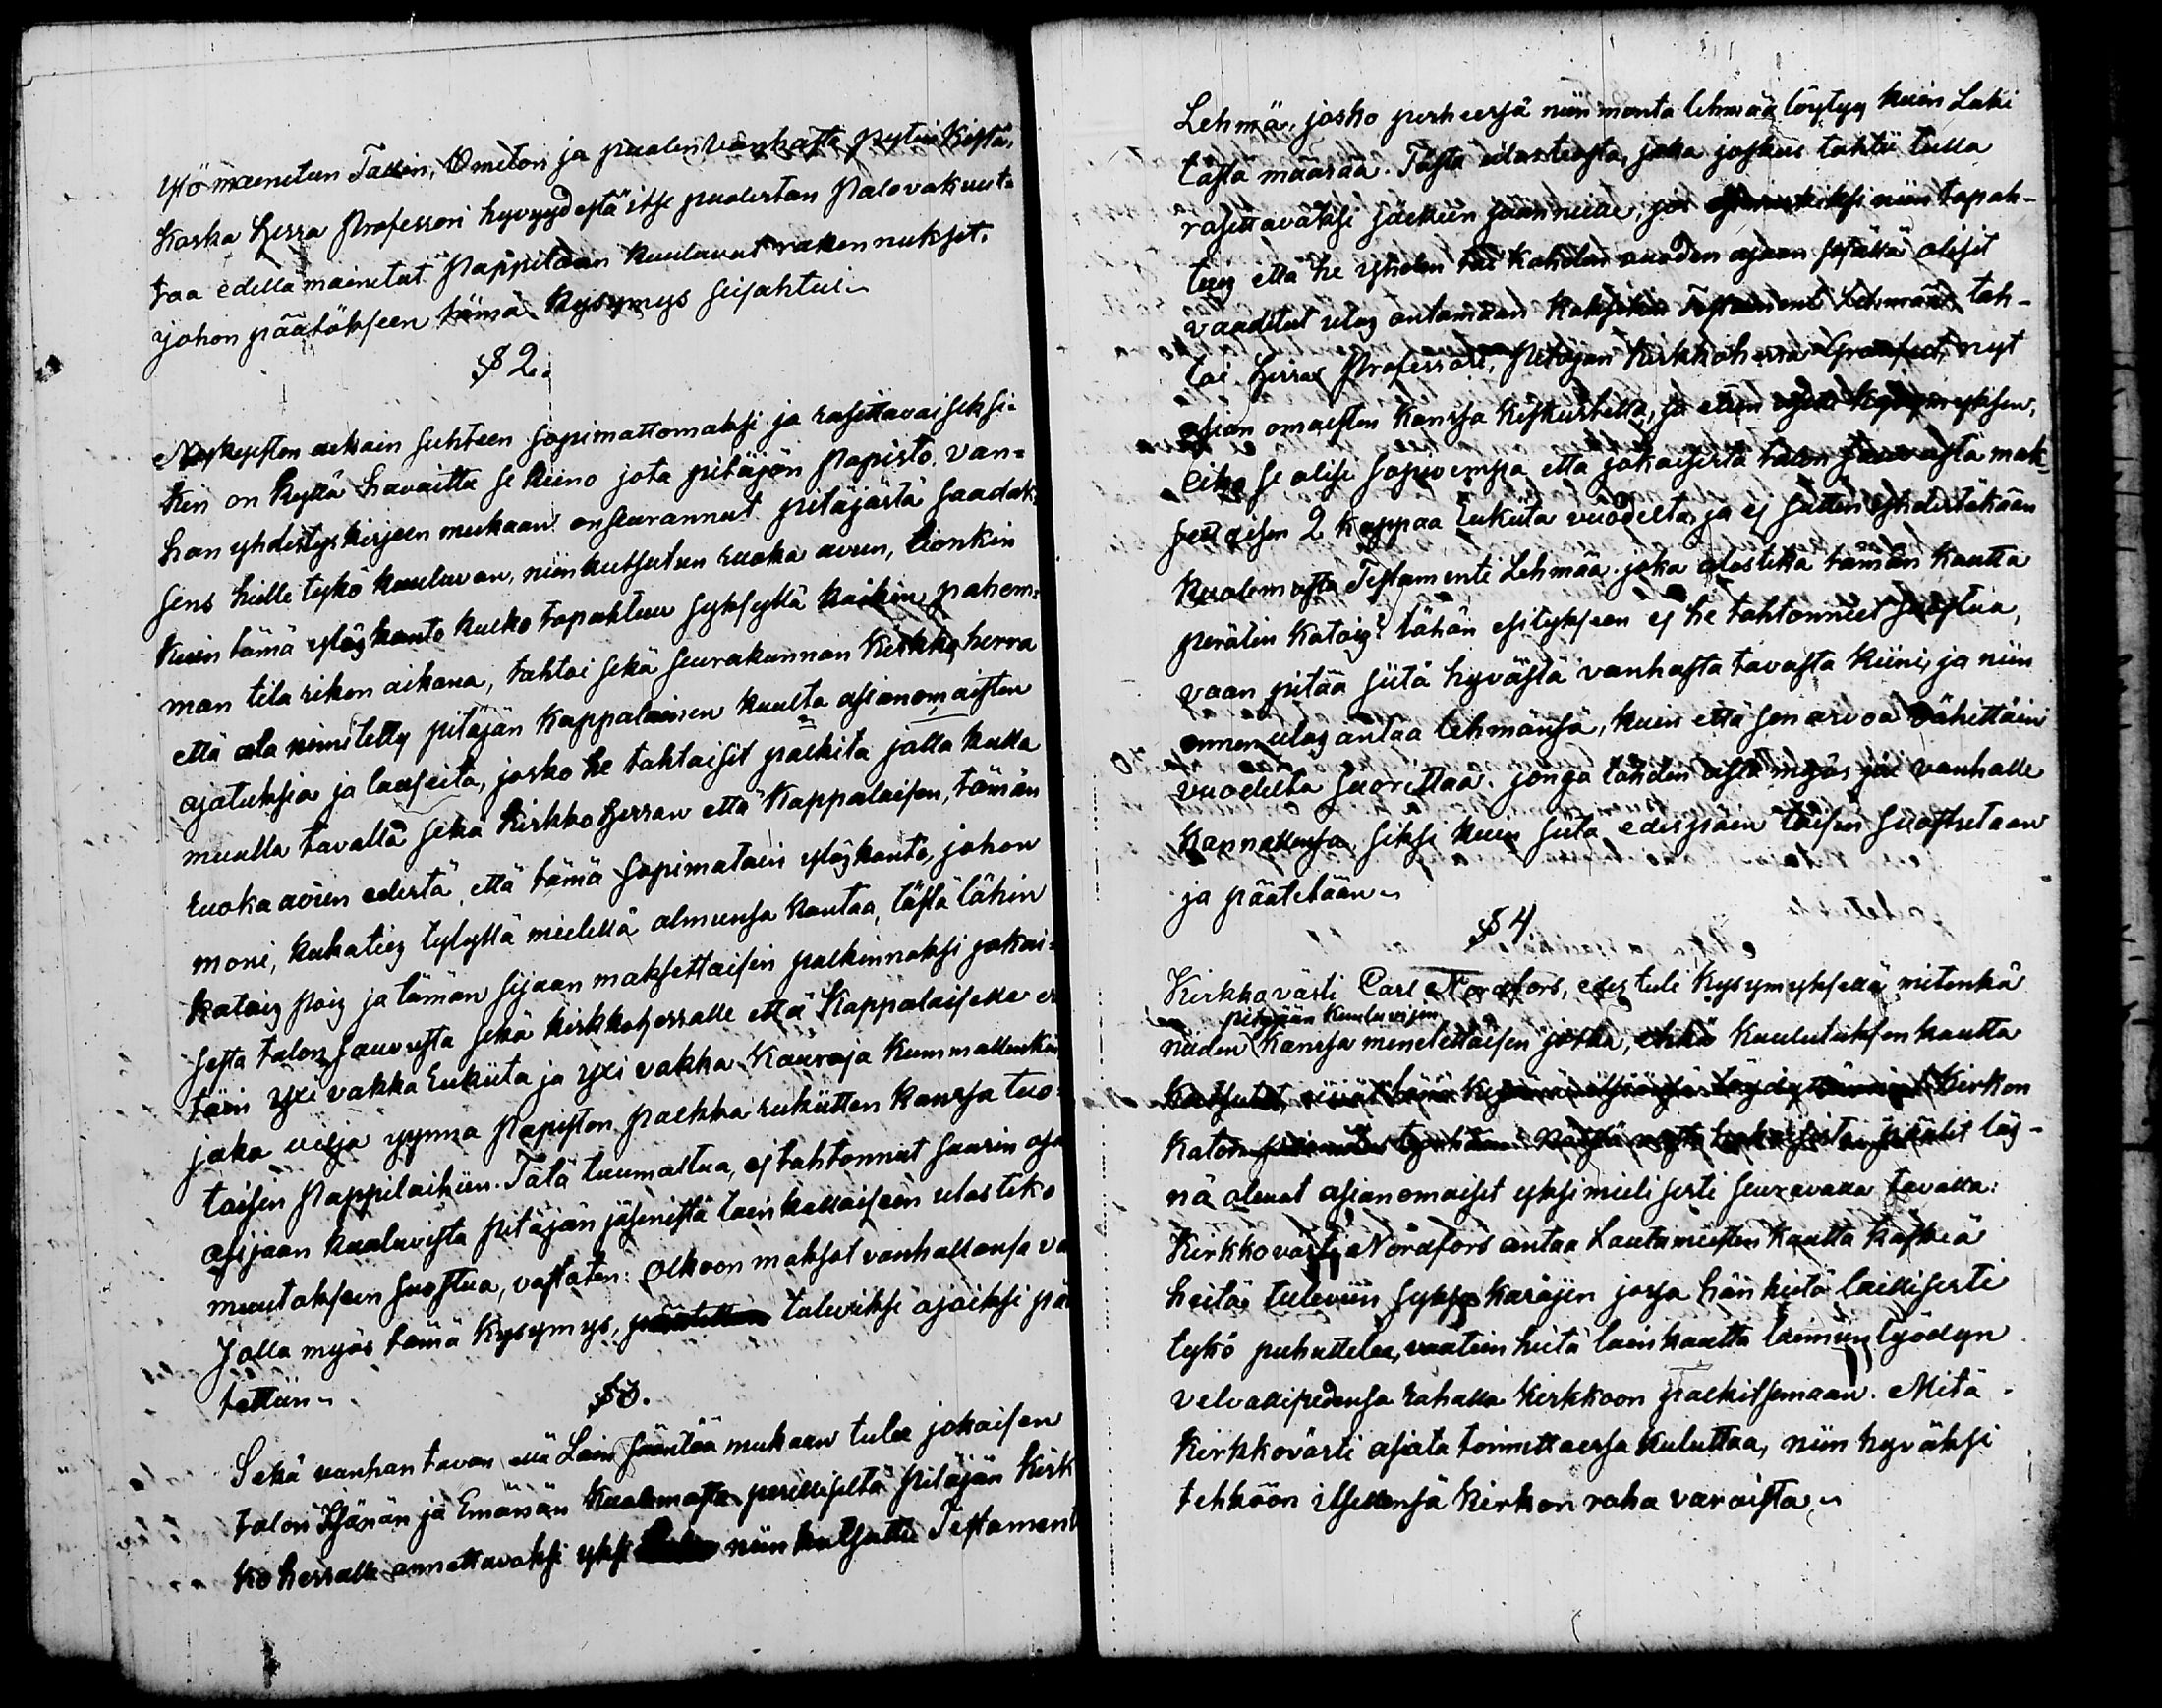 Ylö mainetun Tallin, Ometon ja puolen vanhasta pytinkistä,
koska Herra Professori hyvyydestä itse puolestan Palovakuut-
taa edellä mainetut Pappilaan kuuluvat rakennukset.
johon päätökseen tämä kysymys seisahtui
§ 2.
Nykyisten aikain suhteen sopimattomaksi ja rasittavaiseksi-
kin on kyllä havaittu se keino jota pitäjän Papisto van-
han yhdistyskirjeen mukaan on seurannut pitäjästä saadak-
sens heille tykö kuuluvan, niin kutsutun ruoka avun, Eionkin
kuin tämä ylöskanto kulko tapahtuu syksyllä kaikin pahem-
man tila rikon aikana, tahtoi sekä seurakunnan Kirkkoherra
että ala nimitetty pitäjän Kappalainen kuulta asianomaisten
ajatuksia ja lauseita, josko he tahtoisit palkita jolla kulla
muulla tavalla sekä Kirkkoherran että Kappalaisen, tämän
Ruoka avun edestä, että tämä sopimatoin ylöskanto, johon
moni, kukaties tylyllä mielellä almunsa kantaa, tästä lähin
katois pois ja tämän sijaan maksettaisin palkinnoksi jokai-
sesta talon savusta sekä kirkkoherralle että Kappalaiselle er
täin yxi vakka Rukiita ja yxi vakka Kauroja kummallenkin
joka vilja ynnä Papiston palkka rukiitten kanssa tuo-
taisin Pappiloihin. Tätä tuumaltua, ej tahtonnut suurin osa
asijaan kuuluvista pitäjän jäsenistä tain kallaiseen ulosteko
muutokseen suostua, vastaten: olkoon maksot vanhallansa va
Jolla myös tämä kysymys, tulevikse ajoiksi pä
tettiin
§ 3.
Sekä vanhan tavan että Lain säntöä mukaan tulee jokaisen
talon Isänän ja Emänän kuolemasta perillisiltä pitäjän Kirk
koherralle annettavaksi yksi niin kutsuttu Testament
Lehmä, josko perheessä niin monta lehmää löytyy kuin Laki
tästä määrää. Tästä ulosteosta, joka joskus tahtii tulla
rasittavaksi jälkiin jäänneille, jos niin tapah-
tuis että he yhden tai kahden vuoden ajaan sisällä olisit
vaaditut ulos antamaan kaksikin Testamenti Lehmää, tah-
toi Herra Professori, Pitäjän kirkkoherra nyt
asian omaisten kanssa keskustella, ja eteen kysymyksen,
eikö se olise sopivempa että jokaisesta talon savusta mak-
settaisin 2 kappaa Rukiita vuodelta ja ej sitten yhdestäkään
kuolemasta Testamenti Lehmää. joka ulosteko tämän kautta
perätin katois? tähän esitykseen ej he tahtonneet suostua,
vaan pitää siitä hyvästä vanhasta tavasta kiini, ja niin
ennen ulos antaa lehmänsä, kuin että sen arvoa vähittäin
vuodelta suorittaa. jonga tähden asia myös jäi vanhalle
kannallensa siksi kuin siitä edespäin toisin suostutaan
ja päätetään
§ 4.
Kirkkovärti Carl Nordfors, edes tuli kysymyksellä mitenkä
pitäjään kuuluvisin
niiden kanssa menetettäisen jotka, ehkä kuulutuksen kautta
Kirkon
katon läs-
nä olevat asianomaiset yksimielisesti seuravalla tavalla:
Kirkkovärti Nordfors antaa Lautamiesten kautta käskiä
heitä tuleviin syksy käräjiin jossa hän heitä laillisesti
tykö puhuttelee, vaatein heitä lain kautta laimin lyödyn
velvallisudensa rahalla kirkkoon palkitsemaan. Mitä
Kirkkovärti asiata toimittaessa kuluttaa, niin hyväksi
tehköön itsellensä kirkon raha varoista